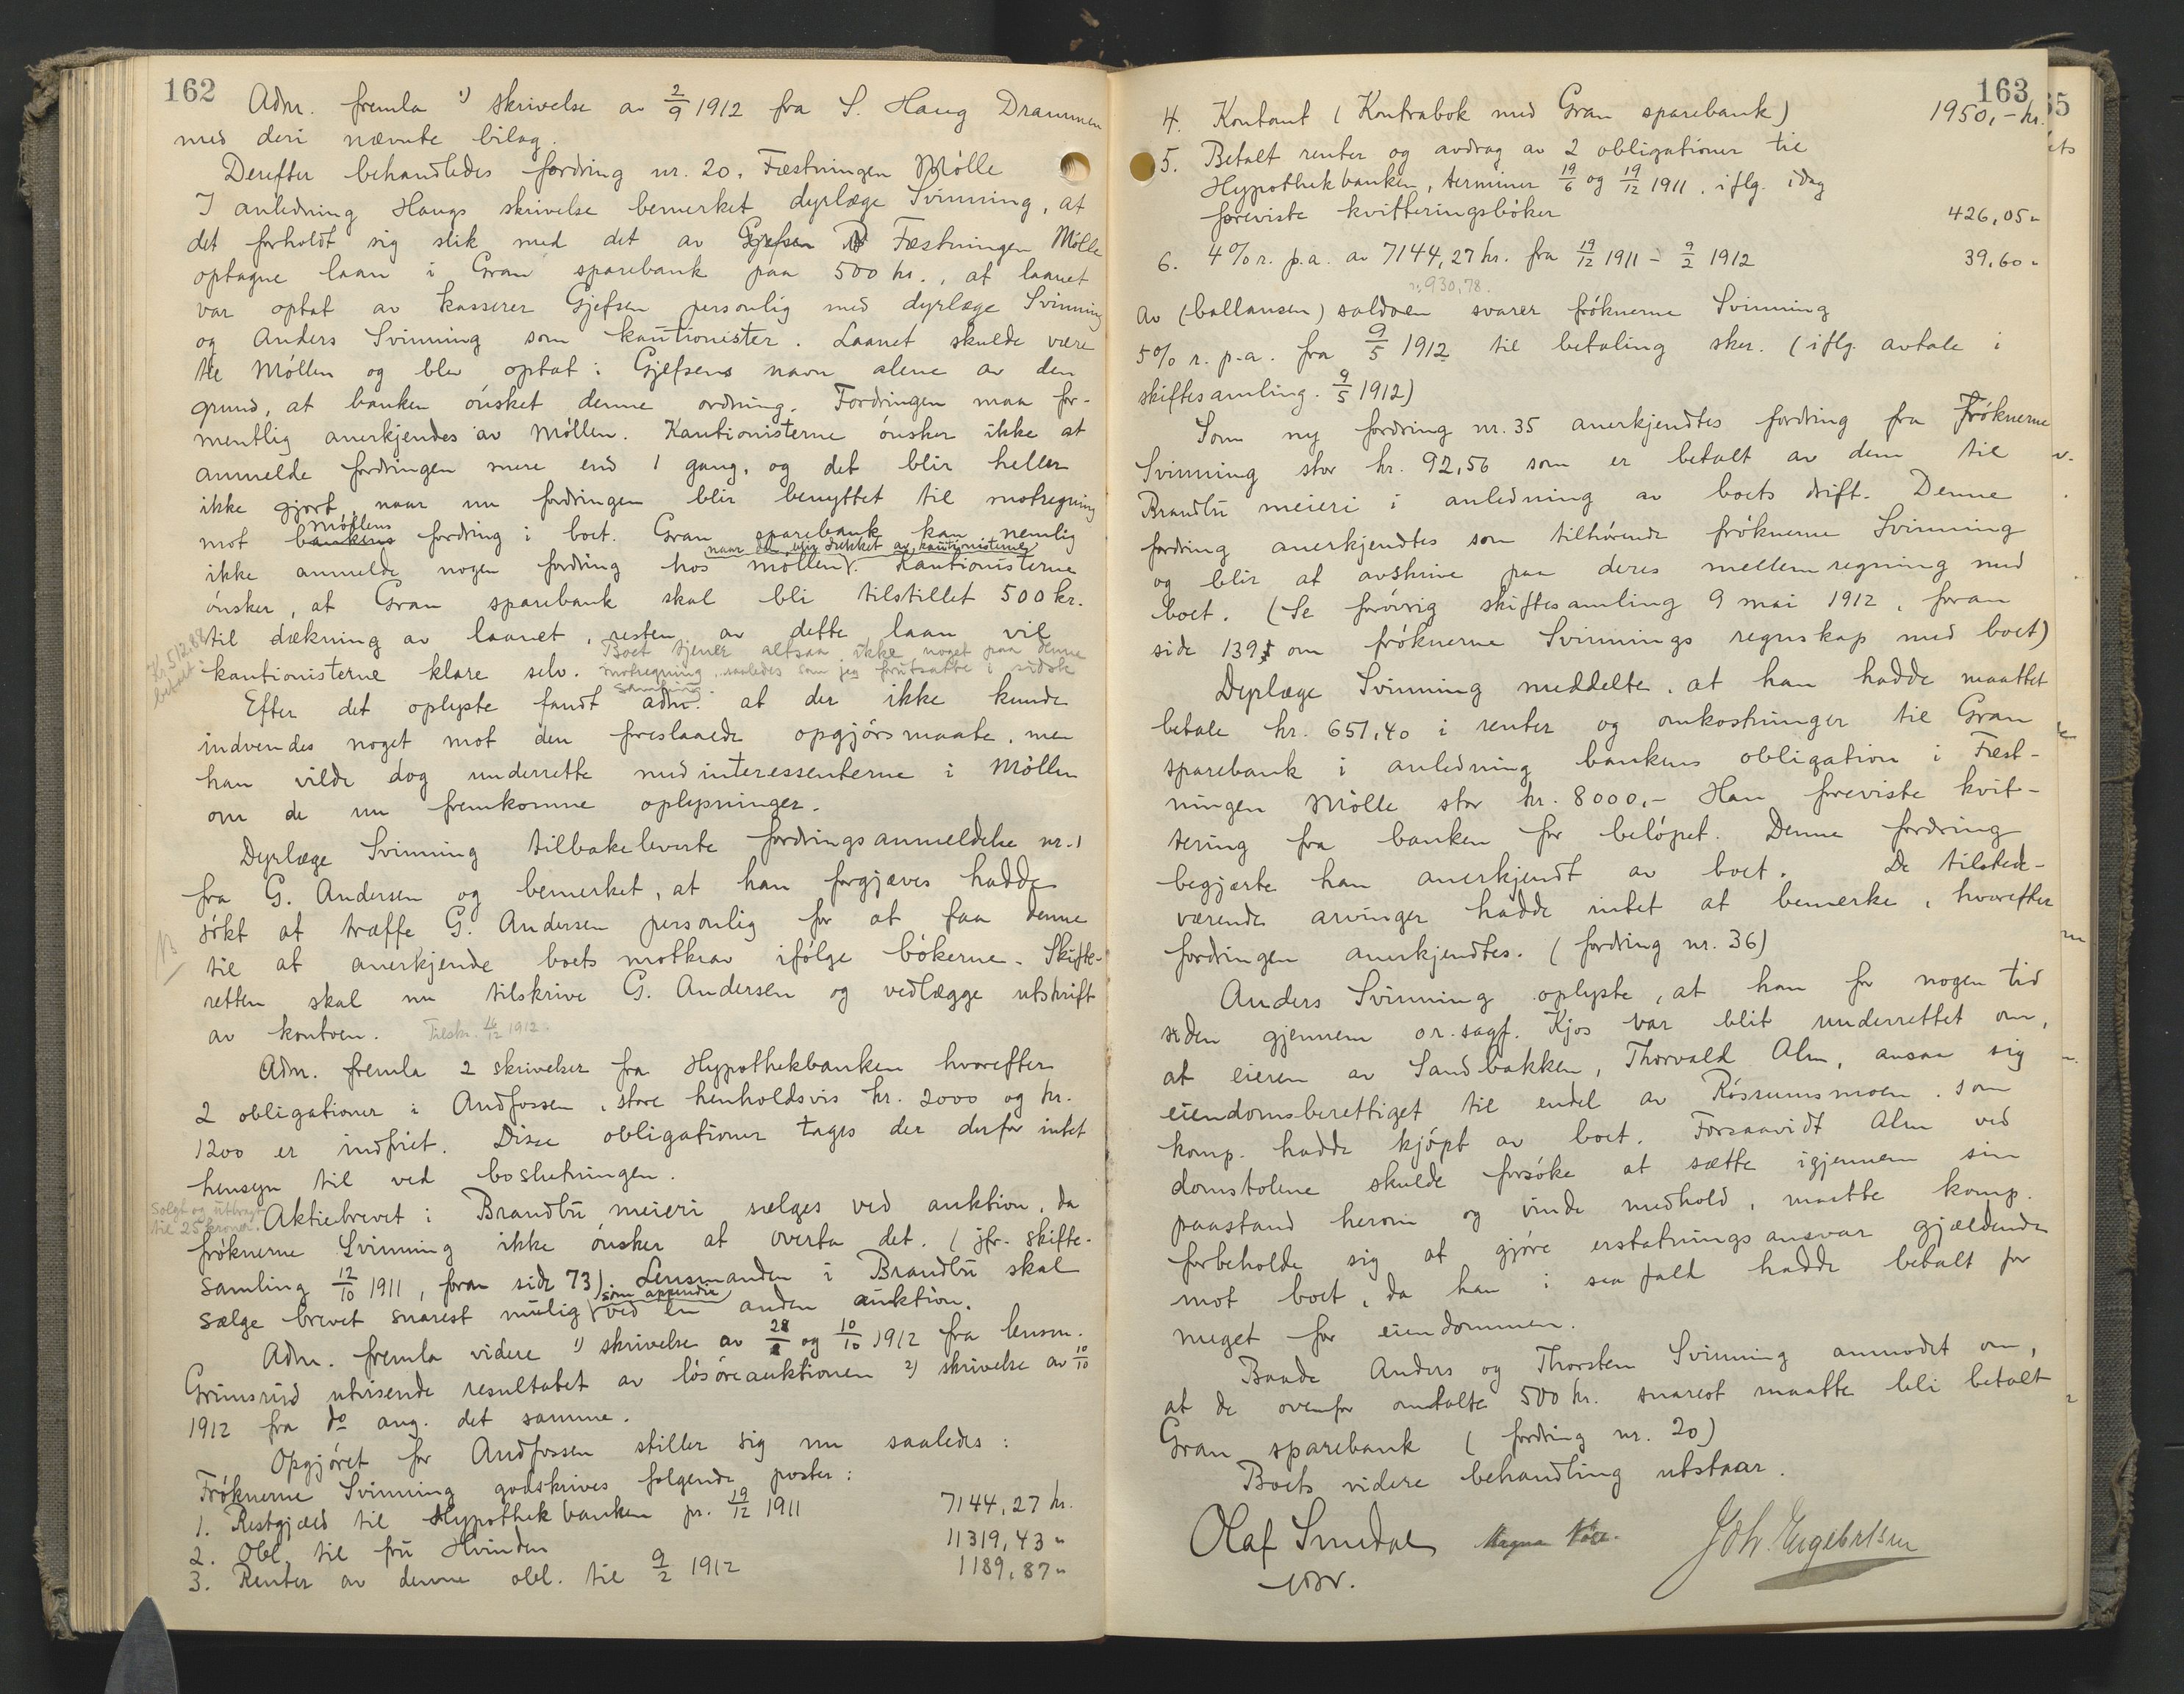 162
Adm. fremla 1) skrivelse av 2/9 1912 fra S. Haug Drammen
med deri nævnte bilag.
Derefter behandledes fordring nr. 20. Fæstningen Mølle
I anledning Haugs skrivelse bemerket dyrlæge Svinning, at
det forholdt sig slik med det av Fæstningen Mølle
optagne laan i Gran sparebank paa 500 kr., at laanet
var optat av kasserer Gjefsen personlig med dyrlæge Svinning
og Anders Svinning som kautionister. Laanet skulde være
til Møllen og blev optat i Gjefsens navn alene av den
grund, at banken ønsket denne ordning. Fordringen maa for-
mentlig anerkjendes av Møllen. Kautionisterne ønsker ikke at
anmelde fordringen mere end 1 gang, og det blir heller
ikke gjort, naar nu fordringen blir benyttet til motregning
møllens
mot bankens fordring i boet. Gran sparebank kan nemlig
naar den blir dækket av kautionisterne
ikke anmelde nogen fordring hos møllen. Kautionisterne
ønsker, at Gran sparebank skal bli tilstillet 500 kr.
til dækning av laanet, resten av dette laan vil
Kr. 512.88
betalt
Boet tjener altsaa ikke noget paa denne
kautionisterne klare selv. motregning, saaledes som jeg forutsatte i sidste
samling.
Efter det oplyste fandt adm. at der ikke kunde
indvendes noget mot den foreslaaede opgjørsmaate, men
han vilde dog underrette medinteressenterne i Møllen
om de nu fremkomne oplysninger.
Dyrlæge Svinning tilbakeleverte fordringsanmeldelse nr. 1
fra G. Andersen og bemerket, at han forgjæves hadde
søkt at træffe G. Andersen personlig for at faa denne
til at anerkjende boets motkrav ifølge bøkerne. Skifte-
retten skal nu tilskrive G. Andersen og vedlægge utskrift
av kontoen. Tilskr. 16/12 1912.
Adm. fremla 2 skrivelser fra Hypothekbanken hvorefter
2 obligationer i Andfossen, store henholdsvis kr. 2000 og kr.
1200 er indfriet. Disse obligationer tages der derfor intet
hensyn til ved boslutningen.
Solgt og utbragt
til 25 kroner.
Aktiebrevet i Brandbu meieri sælges ved auktion, da
frøknerne Svinning ikke ønsker at overta det. (jfr. skifte-
samling 12/10 1911, foran side 73). Lensmanden i Brandbu skal
som appendix
sælge brevet snarest mulig ved en anden auktion.
Adm. fremla videre 1) skrivelse av 28/8 og 10/10 1912 fra lensm.
Grimsrud utvisende resultatet av løsøreauktionen 2) skrivelse av 10/10
1912 fra do ang. det samme.
Opgjøret for Andfossen stiller sig nu saaledes:
Frøknerne Svinning godskrives følgende poster:
1. Restgjæld til Hypothekbanken pr. 19/12 1911 7144,27 kr.
2. Obl. til fru Hvinden 11319,43 "
3. Renter av denne obl. til 9/2 1912 1189,87 "
163
4. Kontant (Kontrabok med Gran sparebank) 1950,- kr.
5. Betalt renter og avdrag av 2 obligationer til
Hypothekbanken, terminer 19/6 og 19/12 1911, iflg. idag
foreviste kvitteringsbøker 426,05 "
6. 4% r. p.a. av 7144,27 kr. fra 19/12 1911 - 9/2 1912 39,60 "
930,78.
Av (ballansen) saldoen svarer frøknerne Svinning
5% r. p.a. fra 9/5 1912 til betaling sker. (iflg. avtale i
skiftesamling. 9/5 1912)
Som ny fordring nr. 35 anerkjendtes fordring fra Frøknerne
Svinning stor kr. 92,56 som er betalt av dem til
Brandbu meieri i anledning av boets drift. Denne
fordring anerkjendtes som tilhørende frøknerne Svinning
og blir at avskrive paa deres mellemregning med
boet. (Se forøvrig skiftesamling 9 mai 1912, foran
side 139 om frøknerne Svinnings regnskap med boet)
Dyrlæge Svinning meddelte, at han hadde maattet
betale kr. 651,40 i renter og omkostninger til Gran
sparebank i anledning bankens obligation i Fæst-
ningen Mølle stor kr. 8000,- Han foreviste kvit-
tering fra banken for beløpet. Denne fordring
begjærte han anerkjendt av boet. De tilstede-
værende arvinger hadde intet at bemerke, hvorefter
fordringen anerkjendtes. (fordring nr. 36)
Anders Svinning oplyste, at han for nogen tid
siden gjennem o.r.sagf. Kjos var blit underrettet om,
at eieren av Sandbakken, Thorvald Alm, ansaa sig
eiendomsberettiget til endel av Røssumsmoen, som
komp. hadde kjøpt av boet. Forsaavidt Alm ved
domstolene skulde forsøke at sætte igjennem sin
paastand herom og vinde medhold, maatte komp.
forbeholde sig at gjøre erstatningsansvar gjældende
mot boet, da han i saa fald hadde betalt for
meget for eiendommen.
Baade Anders og Thorsten Svinning anmodet om,
at de ovenfor omtalte 500 kr. snarest maatte bli betalt
Gran sparebank (fordring nr. 20)
Boets videre behandling utstaar.
Olaf Magna Joh. Engebretsen